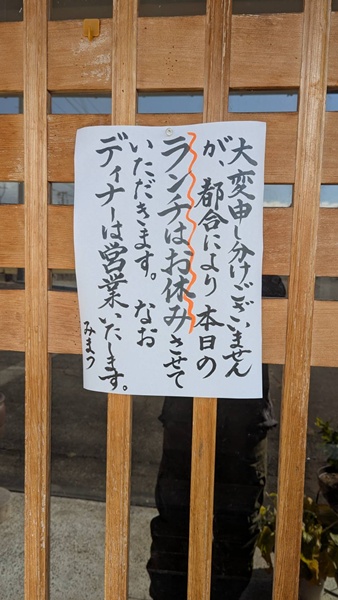 大変申し分けございません
が、都合により本日の
ランチはお休みさせて
いただきます。なお
ディナーは営業いたします。
みまつ